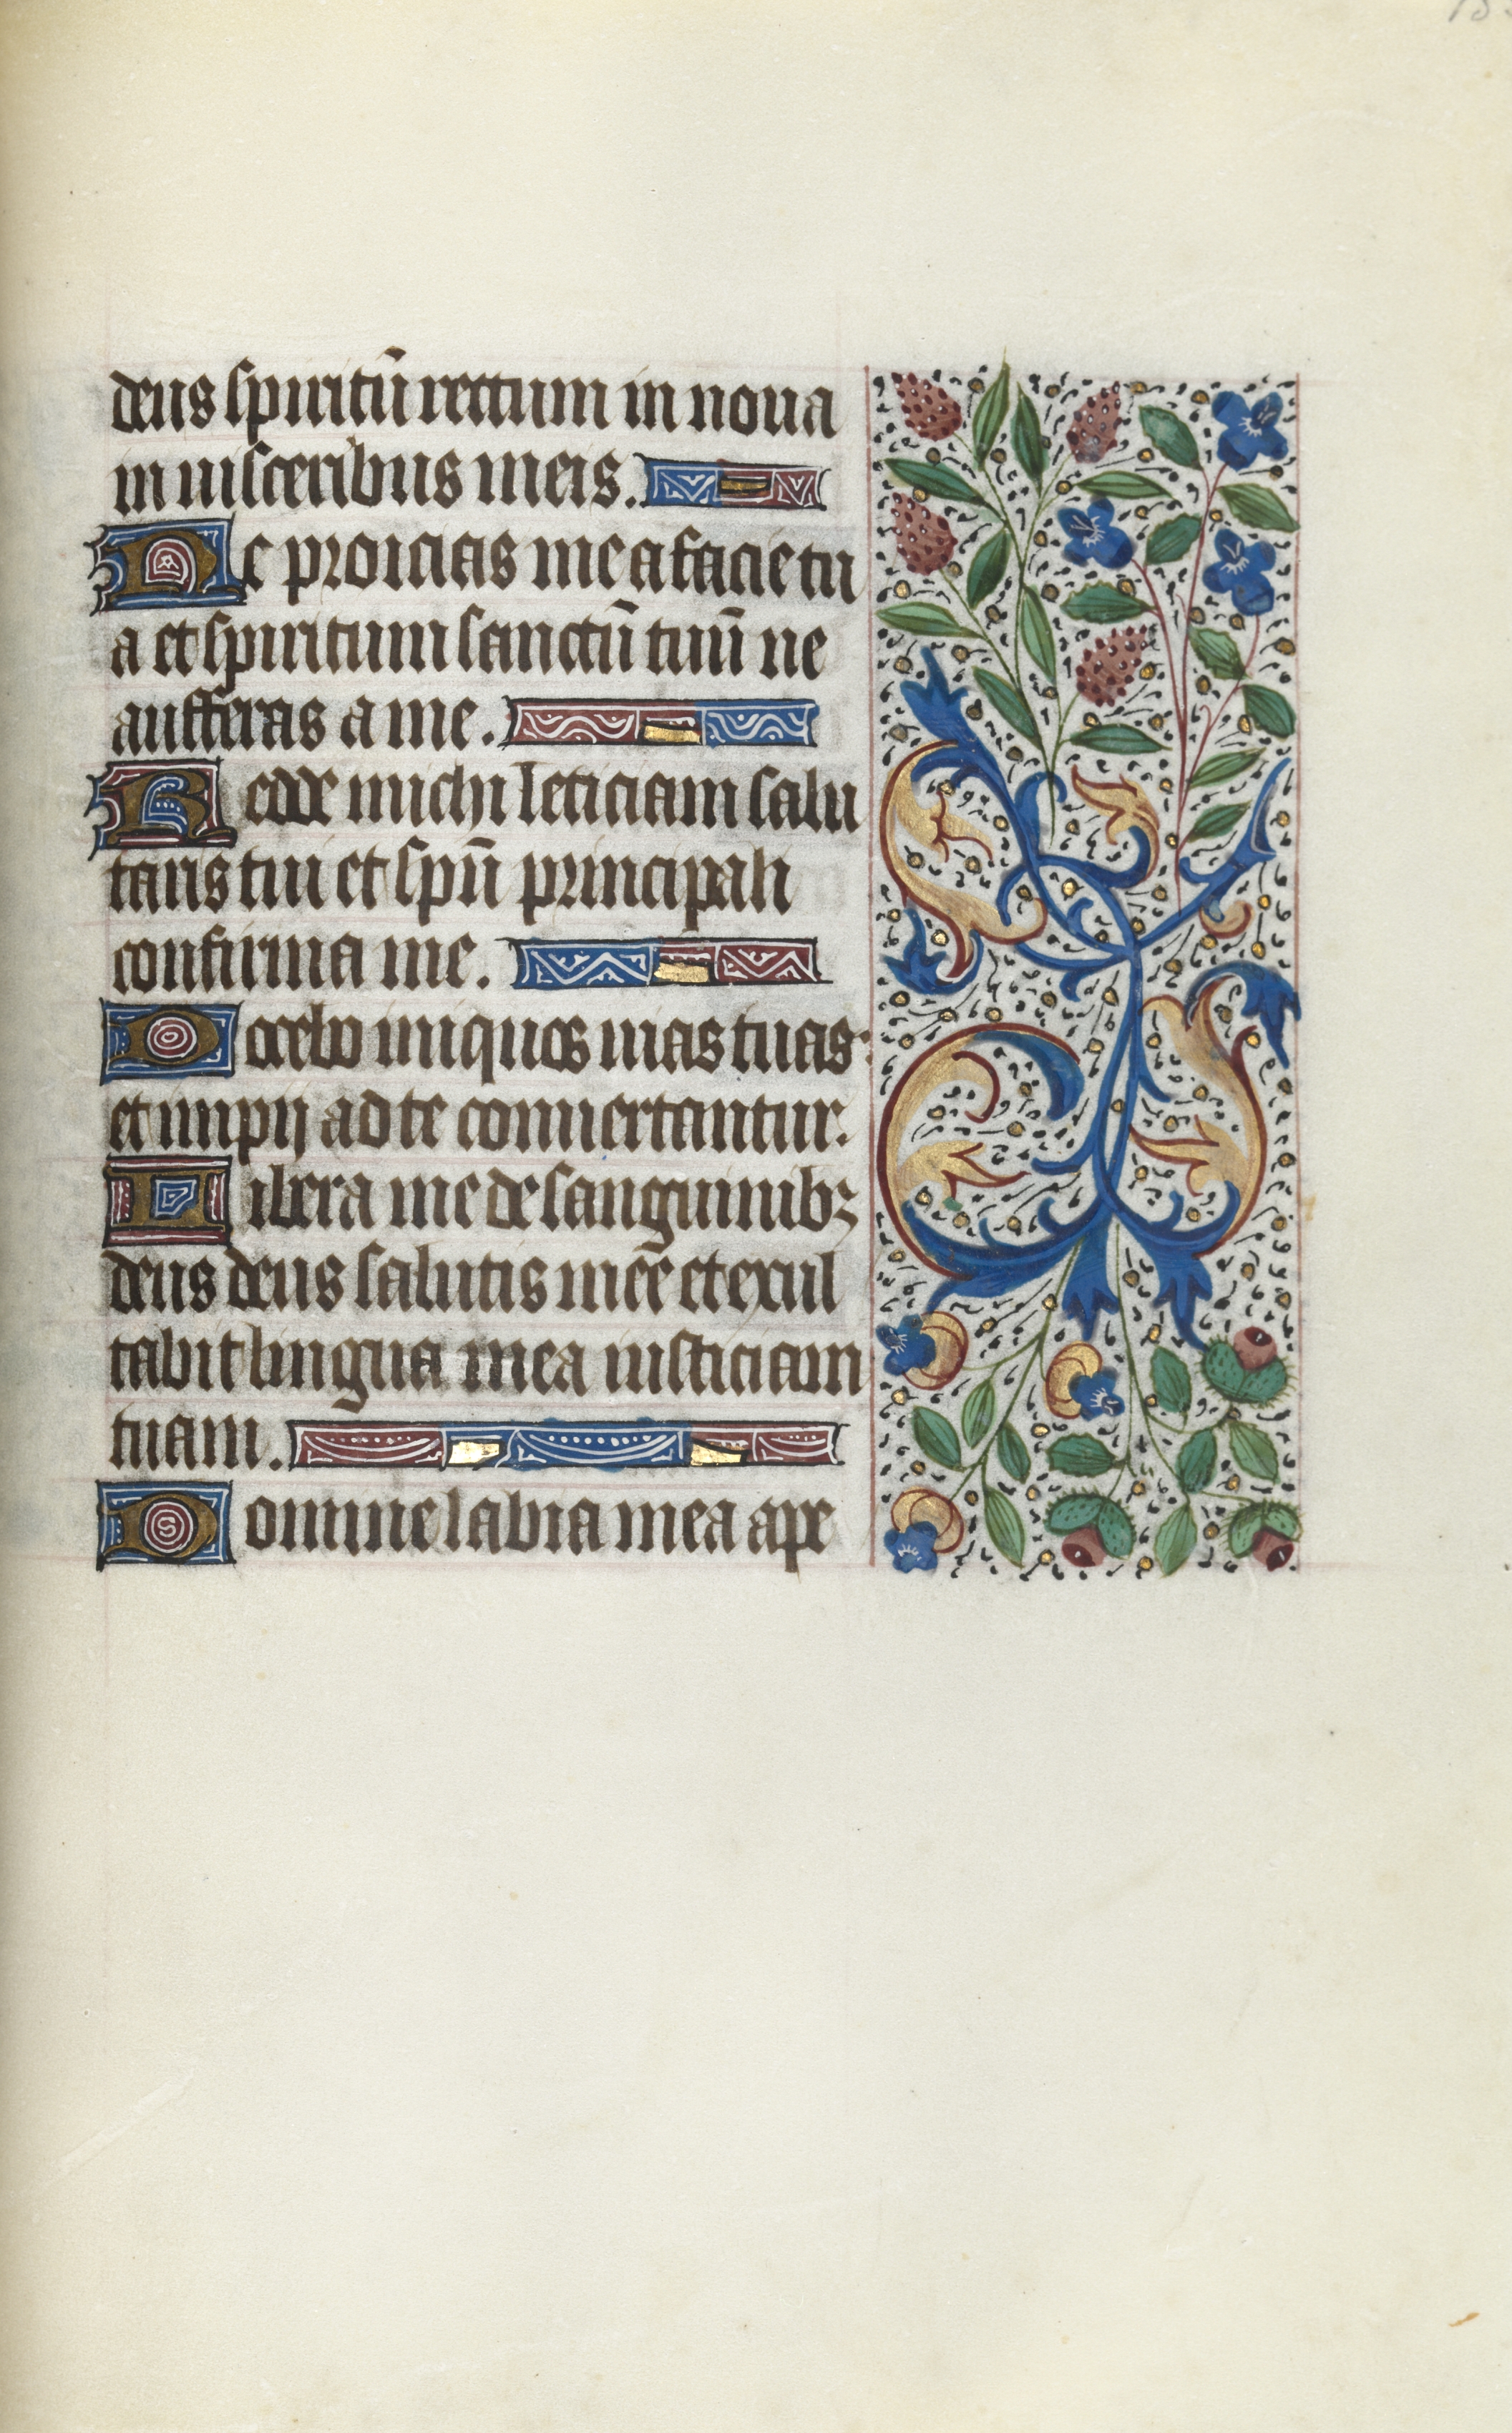 deus spiritū rectum in noua
in uisceribus meis.
Ne proicias me a facie tu
a et spiritum sanctū tuū ne
aufferas a me.
Redde michi leticiam salu
taris tui et spū principali
confirma me.
Docebo iniquos uias tuas:
et impij ad te conuertantur.
Libera me de sanguinibꝫ
deus deus salutis mee et exul
tabit lingua mea iusticiam
tuam.
Domine labia mea ape